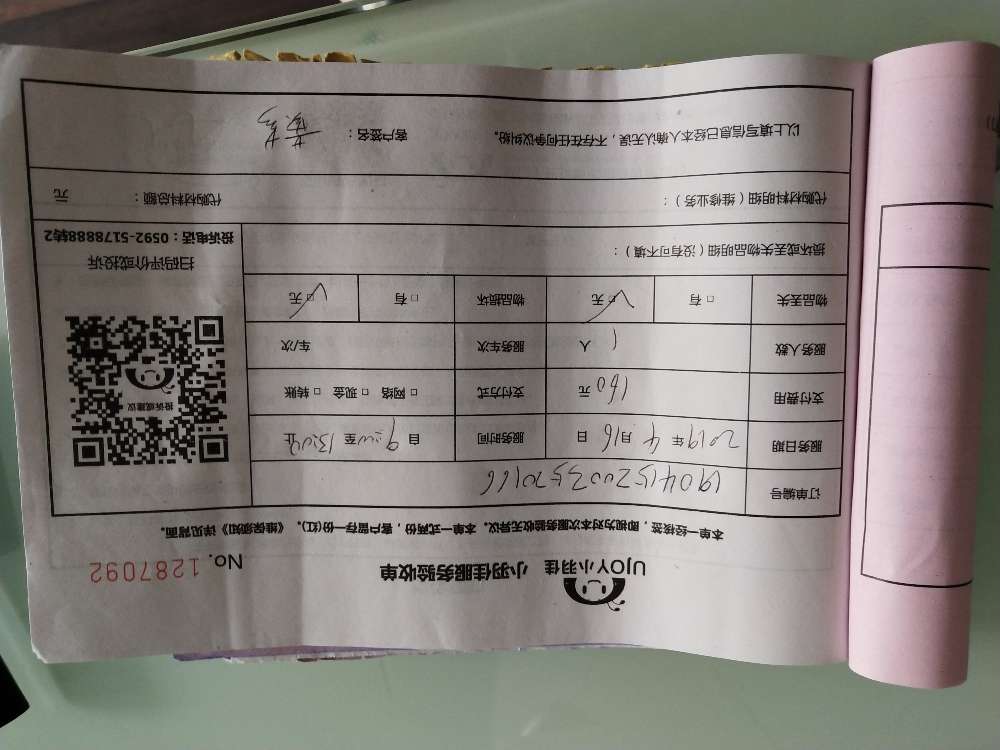 UJOY小羽佳 小羽佳服务验收单 No. 1287092
本单一经核签，即视为对本次服务验收无异议。本单一式两份，客户留存一份(红)。《维保须知》详见背面。
订单编号 1904152003520166
服务日期 2019年4月16日 服务时间 自9:00至13:00止
支付费用 160元 支付方式 □网络 □现金 □转账
服务人数 1人 服务车次 车/次
物品丢失 □有 □无 物品损坏 □有 □无
损坏或丢失物品明细（没有可不填）：
投诉或建议
扫码评价或投诉
投诉电话：0592-5178888转2
代购材料明细（维修业务）： 代购材料总额： 元
以上填写信息已经本人确认无误，不存在任何争议纠纷。 客户签名：